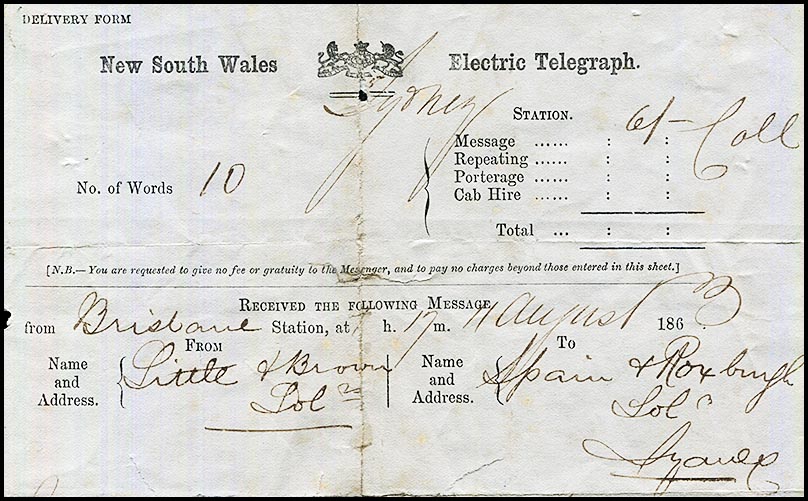 DELIVERY FORM
New South Wales Electric Telegraph.
Sydney STATION.
Message ...... : : 6/- Coll
Repeating ...... : :
Porterage ...... : :
Cab Hire ...... : :
No. of Words 10
Total ... : :
[N.B.—You are requested to give no fee or gratuity to the Messenger, and to pay no charges beyond those entered in this sheet.]
RECEIVED THE FOLLOWING MESSAGE
from Brisbane Station, at h. 17 m. 11 August 1863
FROM TO
Name and Address. Little & Brown Name and Address. Spain & Roxburgh
Solrs Solrs
Sydney